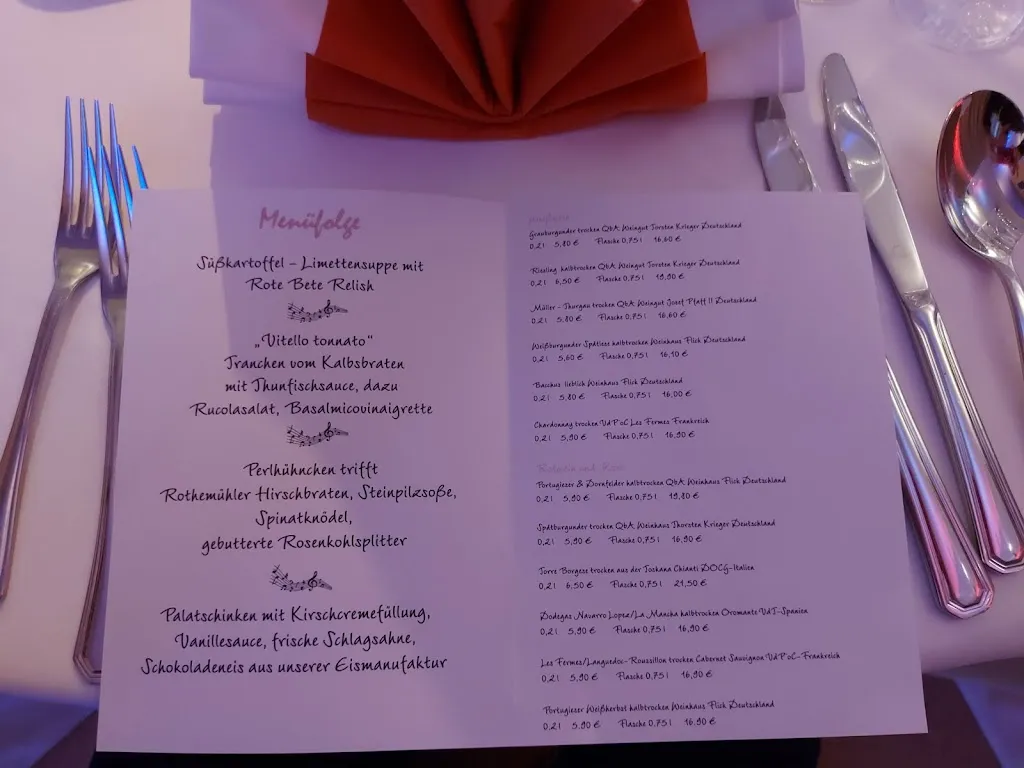 Menüfolge
Süßkartoffel – Limettensuppe mit
Rote Bete Relish
„Vitello tonnato“
Tranchen vom Kalbsbraten
mit Thunfischsauce, dazu
Rucolasalat, Basalmicovinaigrette
Perlhühnchen trifft
Rothemühler Hirschbraten, Steinpilzsoße,
Spinatknödel,
gebutterte Rosenkohlsplitter
Palatschinken mit Kirschcremefüllung,
Vanillesauce, frische Schlagsahne,
Schokoladeneis aus unserer Eismanufaktur
Grauburgunder trocken QbA Weingut Torsten Krieger Deutschland
0,2l 5,80 € Flasche 0,75l 16,60 €
Riesling halbtrocken QbA Weingut Torsten Krieger Deutschland
0,2l 6,50 € Flasche 0,75l 19,90 €
Müller – Thurgau trocken QbA Weingut Josef Pfaff II Deutschland
0,2l 5,80 € Flasche 0,75l 16,60 €
Weißburgunder Spätlese halbtrocken Weinhaus Flick Deutschland
0,2l 5,60 € Flasche 0,75l 16,10 €
Bacchus lieblich Weinhaus Flick Deutschland
0,2l 5,80 € Flasche 0,75l 16,00 €
Chardonnay trocken VdP'oC Les Fermes Frankreich
0,2l 5,90 € Flasche 0,75l 16,90 €
Rotwein und Rosé
Portugieser & Dornfelder halbtrocken QbA Weinhaus Flick Deutschland
0,2l 5,90 € Flasche 0,75l 19,80 €
Spätburgunder trocken QbA Weinhaus Thorsten Krieger Deutschland
0,2l 5,90 € Flasche 0,75l 16,90 €
Torre Borgese trocken aus der Toskana Chianti DOCG-Italien
0,2l 6,50 € Flasche 0,75l 21,50 €
Bodegas Navarro Lopez/La Mancha halbtrocken Oromonte VdT-Spanien
0,2l 5,90 € Flasche 0,75l 16,90 €
Les Fermes/Languedoc-Roussillon trocken Cabernet Sauvignon VdP'oC-Frankreich
0,2l 5,90 € Flasche 0,75l 16,90 €
Portugieser Weißherbst halbtrocken Weinhaus Flick Deutschland
0,2l 5,90 € Flasche 0,75l 16,90 €